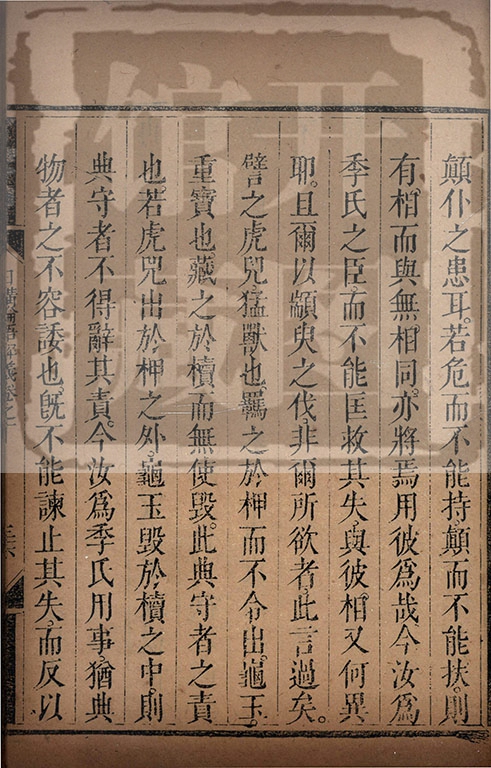 顛仆之患耳。若危而不能持。顛而不能扶。則
有。相而與無相同。亦將焉用彼爲哉今汝爲
季氏之臣。而不能匡救其失。與彼相又何異
耶。且爾以顓臾之伐。非爾所欲者。此言過矣。
譬之虎兕。猛獸也。羈之於柙而不令出。龜玉。
重寶也。藏之於櫝而無使毀。此典守者之責
也。若虎兕出於柙之外。龜玉毀於櫝之中。則
典守者不得辭其責。今汝爲季氏用事。猶典
物者之不容諉也。旣不能諫止其失。而反以
日講
解義卷之